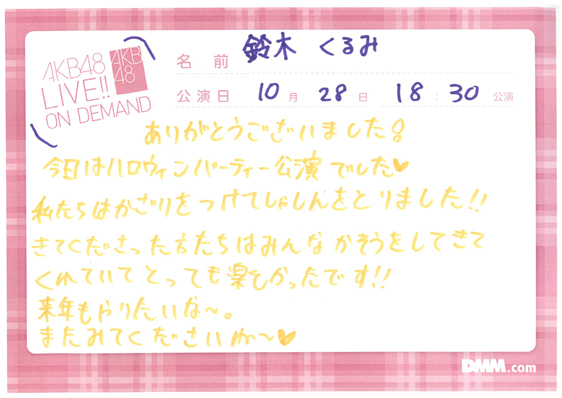 AKB48
LIVE!!
ON DEMAND
AKB
48
名前 鈴木 くるみ
公演日 10月 28日 18:30 公演
ありがとうございました!
今日はハロウィンパーティー公演でした♥
私たちはかざりをつけてしゃしんをとりました!!
きてくださった方たちはみんなかそうをしてきて
くれていてとっても楽しかったです!!
来年もやりたいな〜。
またみてくださいね〜♥
DMM.com